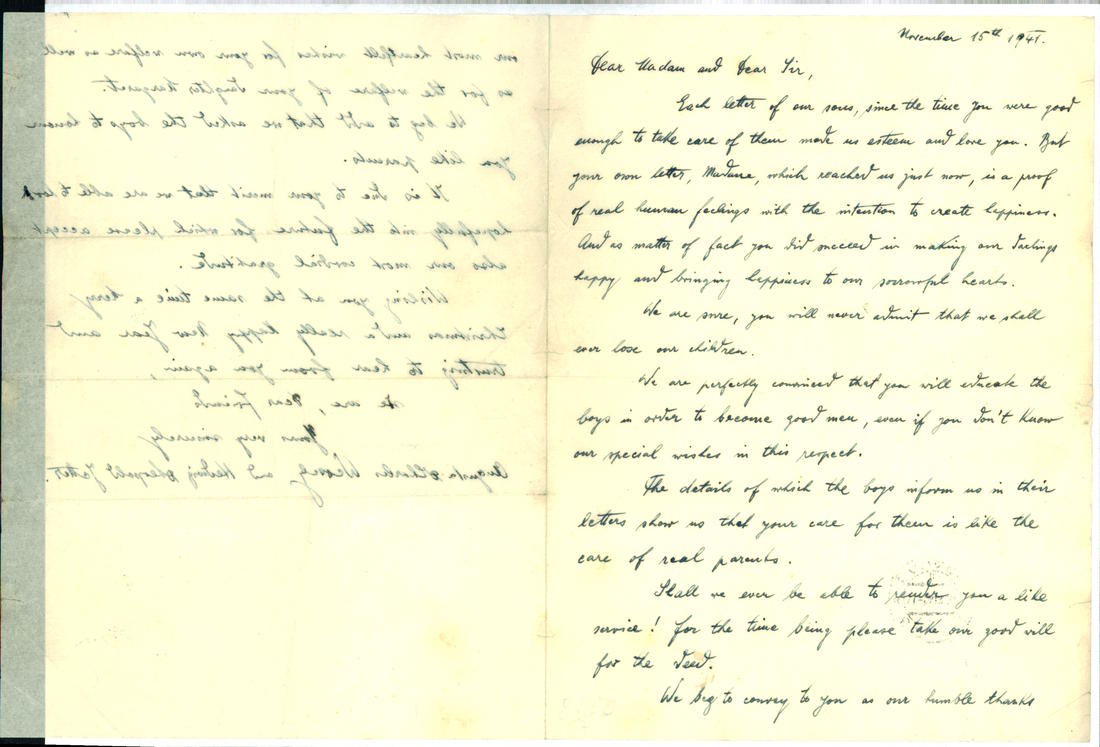 November 15th 1941.
Dear Madam and Dear Sir,
Each letter of our sons, since the time you were good
enough to take care of them made us esteem and love you. But
your own letter, Madame, which reached us just now, is a proof
of real human feelings with the intention to create happiness.
And as matter of fact you did succeed in making our darlings
happy and bringing happiness to our sorrowful hearts.
We are sure, you will never admit that we shall
ever lose our children.
We are perfectly convinced that you will educate the
boys in order to become good men, even if you don't know
our special wishes in this respect.
The details of which the boys inform us in their
letters show us that your care for them is like the
care of real parents.
Shall we ever be able to render you a like
service! For the time being please take our good will
for the deed.
We beg to convey to you as our humble thanks
our most heartfelt wishes for your own welfare as well
as for the welfare of your daughter Margaret.
We beg to add that we asked the boys to honour
you like parents.
It is due to your merit that we are able to look
hopefully into the future for which please accept
also our most cordial gratitude.
Wishing you at the same time a merry
Christmas and a really happy New Year and
trusting to hear from you again,
we are, dear friends
Yours very sincerely
Augusta & Charles and Hedwig & Leopold